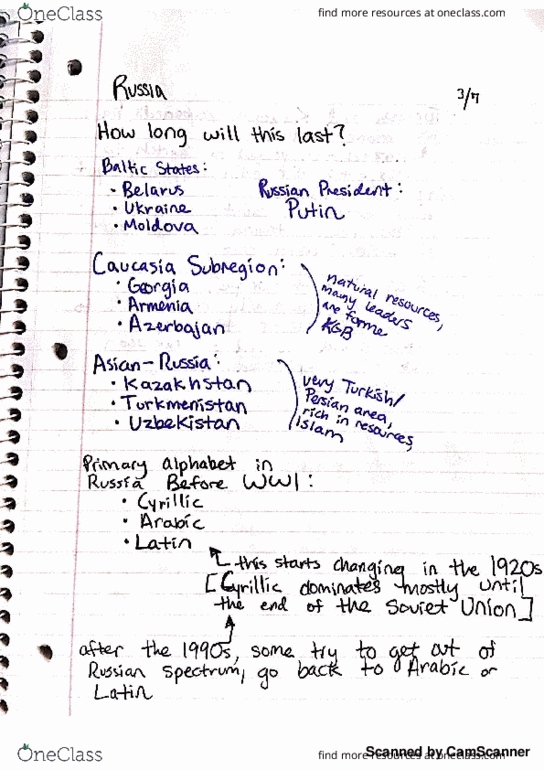 OneClass
find more resources at oneclass.com
Russia
3/7
How long will this last?
Baltic States:
• Belarus
• Ukraine
• Moldova
Russian President:
Putin
Caucasia Subregion:
• Georgia
• Armenia
• Azerbajan
natural resources,
many leaders
are forme
KGB
Asian-Russia:
• Kazakhstan
• Turkmenistan
• Uzbekistan
very Turkish/
Persian area,
rich in resources,
Islam
Primary alphabet in
Russia Before WWI:
• Cyrillic
• Arabic
• Latin
this starts changing in the 1920s
[Cyrillic dominates mostly until
the end of the Soviet Union]
after the 1990s, some try to get out of
Russian spectrum, go back to Arabic or
Latin
OneClass
find more resources at oneclass.com
Scanned by CamScanner